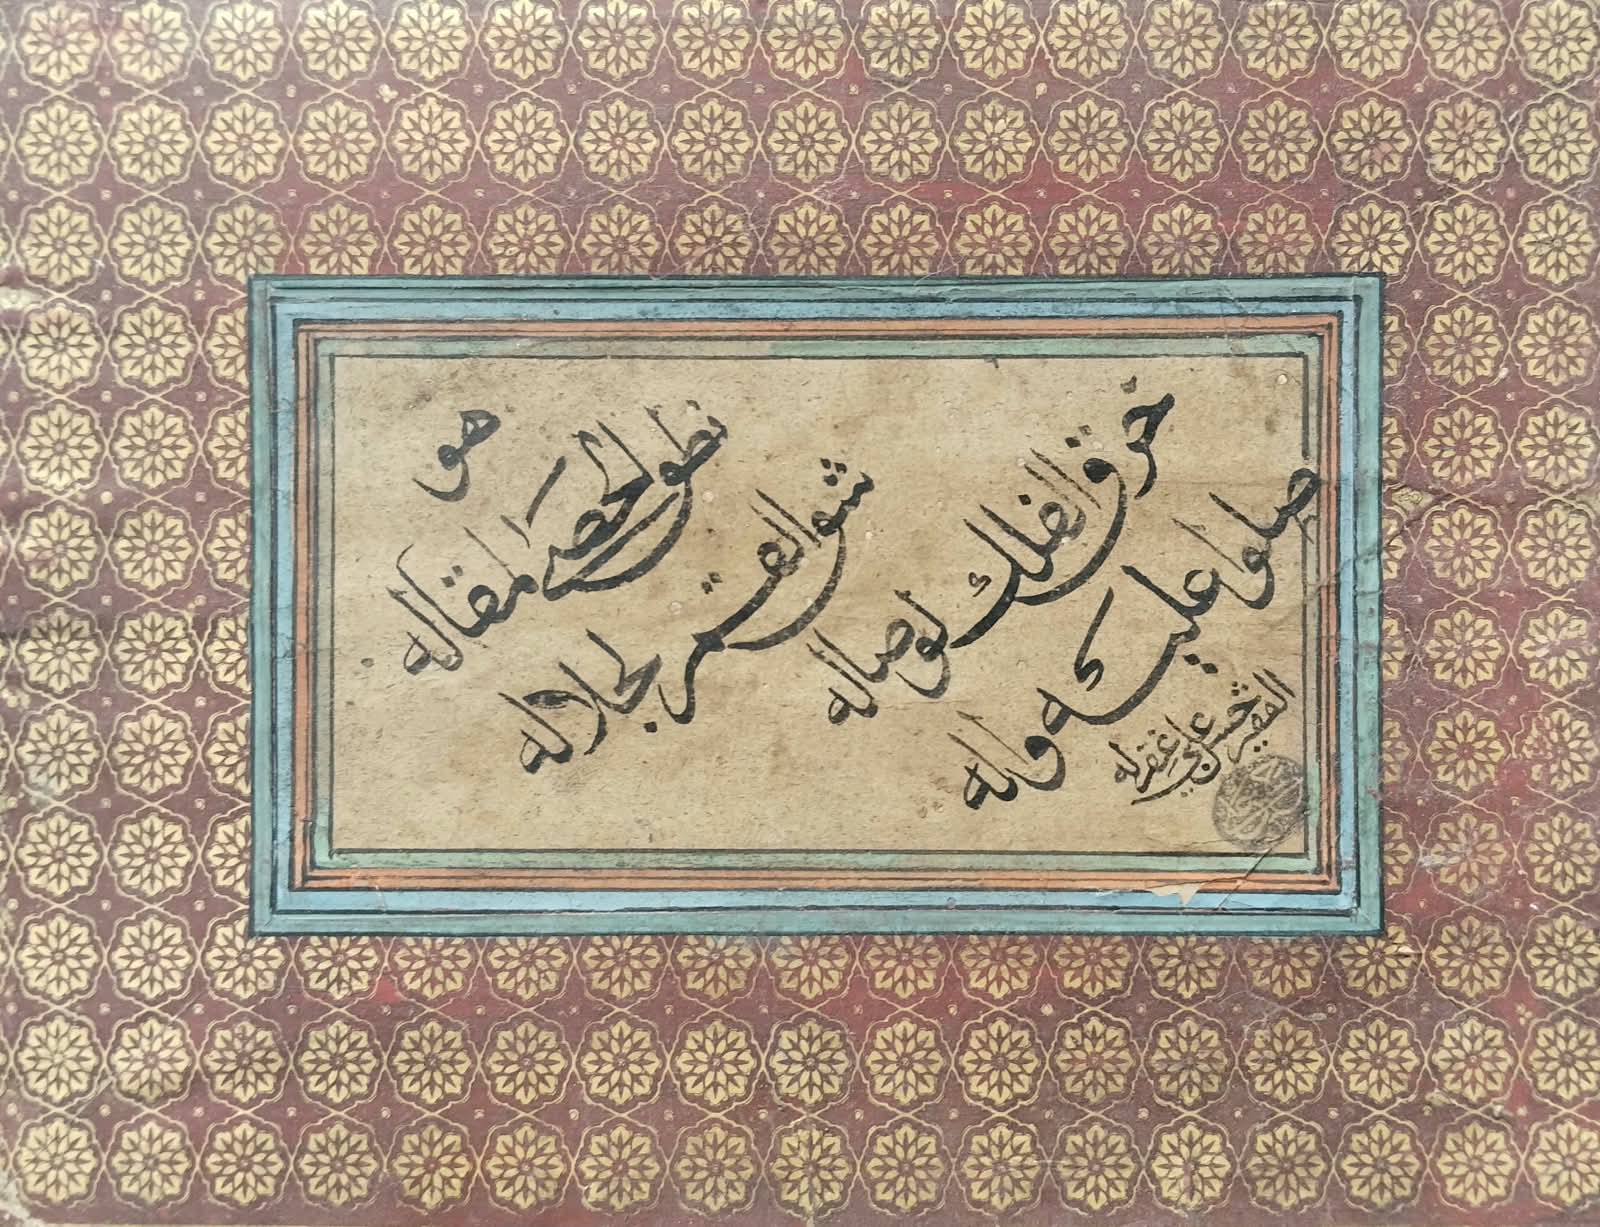 هو
نطق الحصی لمقاله
شق القمر لجلاله
خرق الفلك لوصاله
صلوا علیه وآله
الفقیر حسن علی غفر له